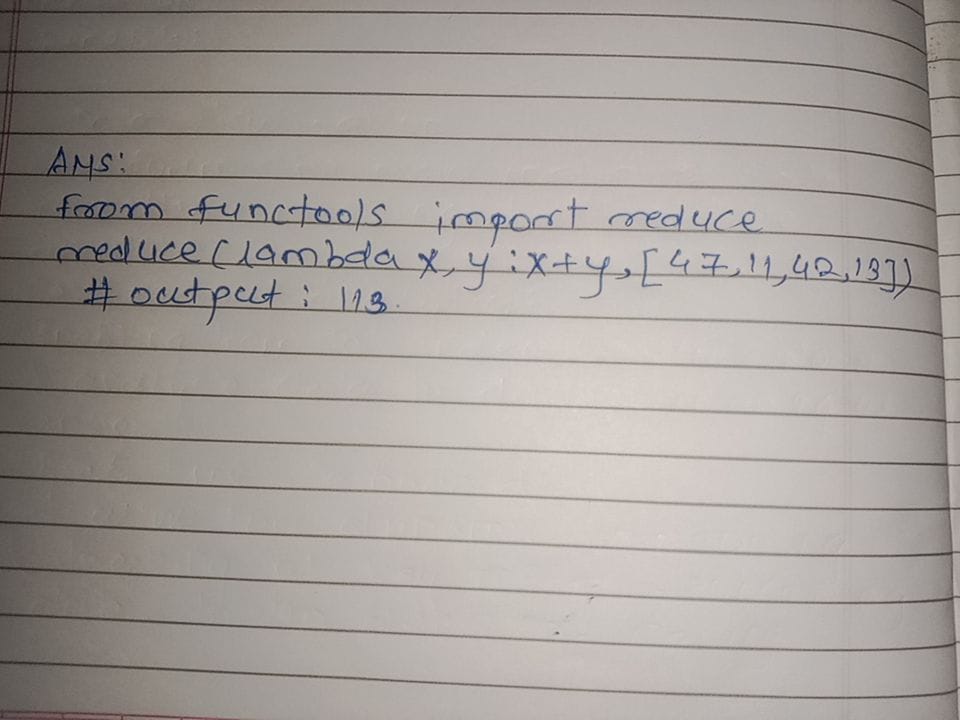 Ans:
from functools import reduce
reduce(lambda x, y : x+y, [47,11,42,13])
# output : 113.